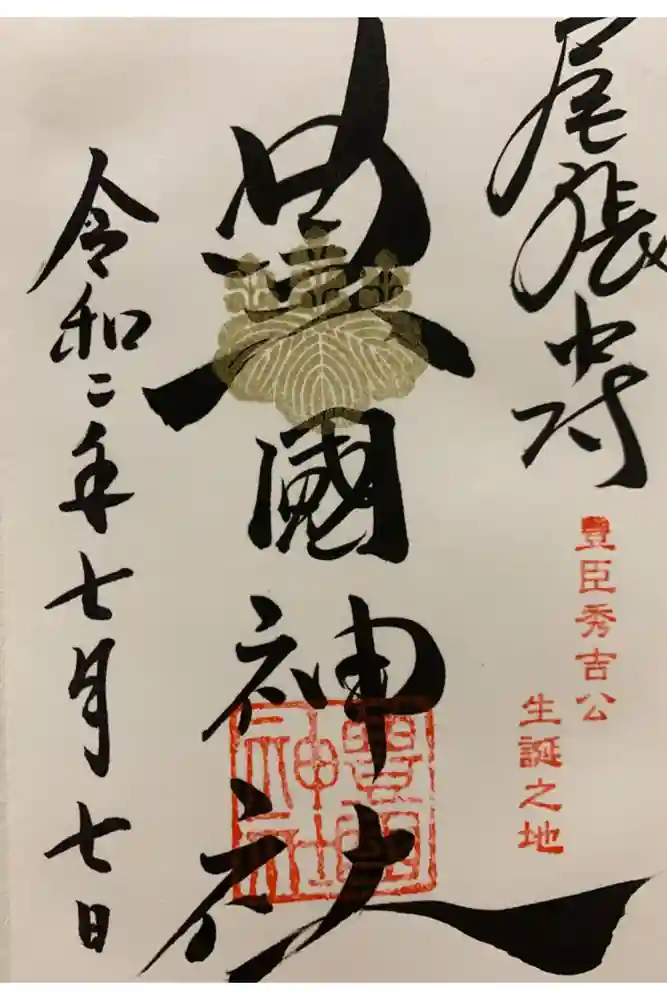 尾張中村
豊臣秀吉公
生誕之地
豊國神社
豊國神社
令和二年七月七日